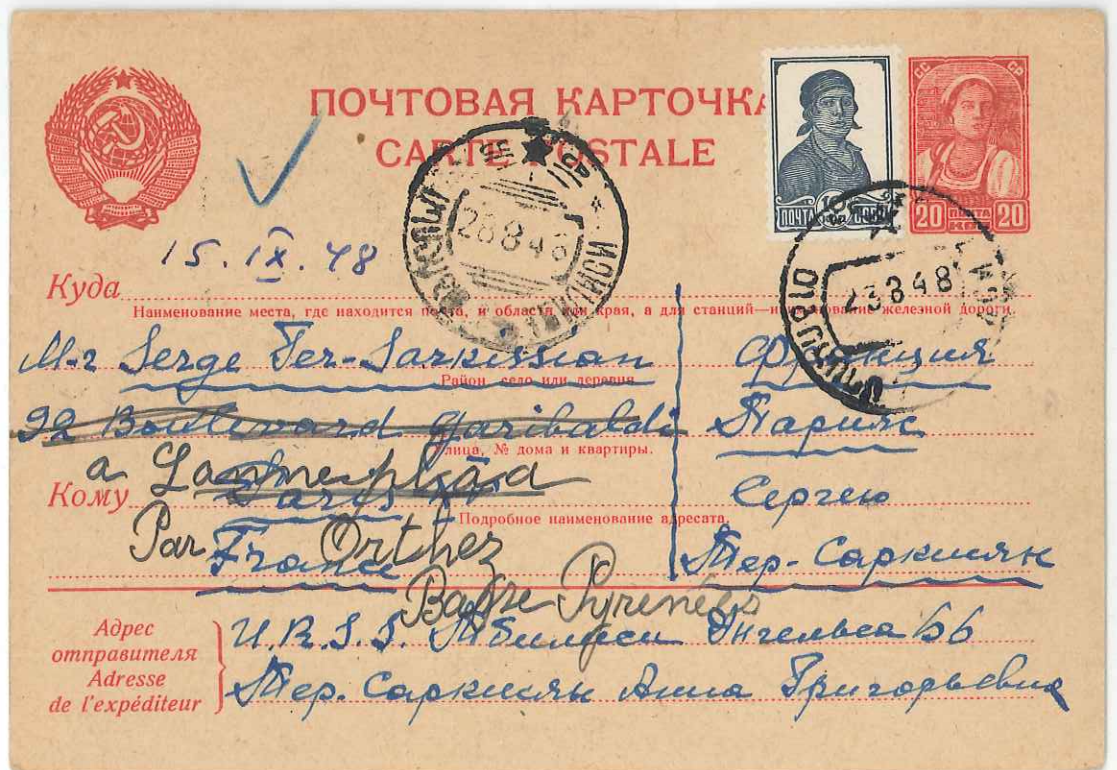 ПОЧТОВАЯ КАРТОЧКА
CARTE POSTALE
СС СР
ПОЧТА
20 ПОЧТА КОП 20
28 8 48
23 8 48
15. IX. 48
Куда
Наименование места, где находится почта, и области или края, а для станций—наименование железной дороги.
M-r Serge Ter-Sarkissian
Франция
Район, село или деревня
92 Boulevard Garibaldi
Париж
Улица, № дома и квартиры.
a
Paris
Сергею
Кому
Подробное наименование адресата.
Par Orthez
France
Тер-Саркисян
Basse Pyrenees
Адрес отправителя
Adresse de l'expéditeur
U.R.S.S. Тбилиси Энгельса 66
Тер-Саркисян Анна Григорьевна